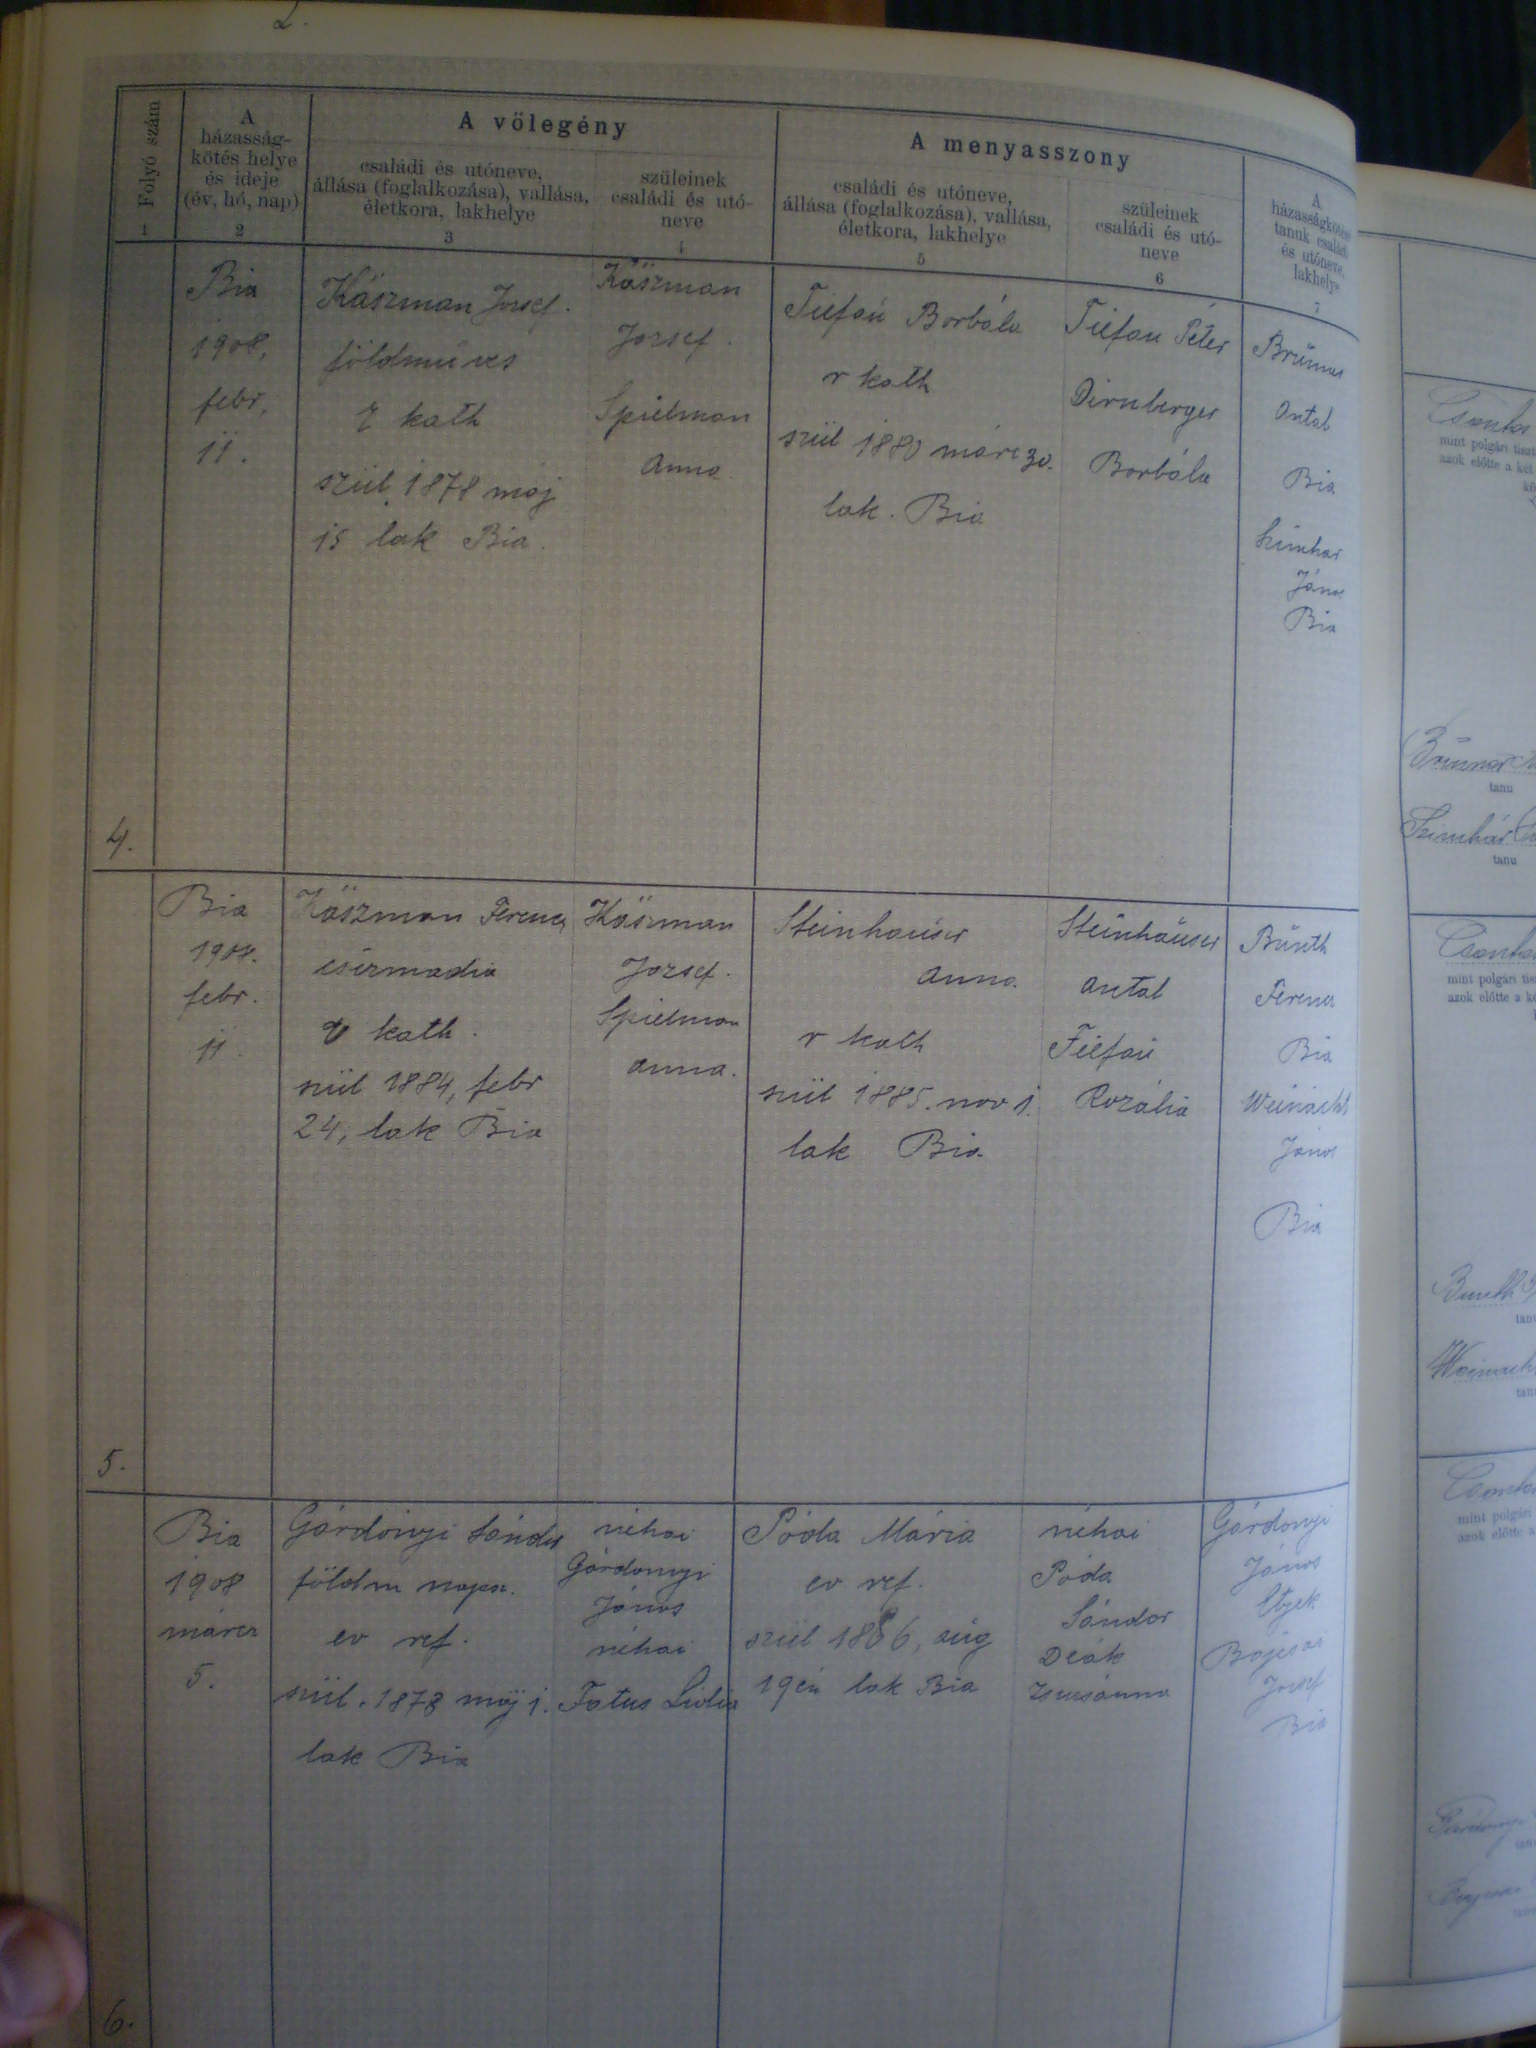 2.
Folyó szám
A
házasság-
kötés helye
és ideje
(év, hó, nap)
A vőlegény
családi és utóneve,
állása (foglalkozása), vallása,
életkora, lakhelye
szüleinek
családi és utó-
neve
A menyasszony
családi és utóneve,
állása (foglalkozása), vallása,
életkora, lakhelye
szüleinek
családi és utó-
neve
A
házasságkötési
tanuk családi
és utóneve,
lakhelye
1
2
3
4
5
6
7
4.
Bia
1908,
febr,
11.
Käszman Jozsef.
földműves
r kath
szül. 1878 máj
15 lak Bia.
Käszman
Jozsef.
Spielman
Anna
Tiefau Borbála
r kath
szül 1880 márc 30.
lak. Bia
Tiefau Péter
Dirnberger
Borbála
Brünner
Antal
Bia
Szimhar
János
Bia
5.
Bia
1908.
febr.
11.
Käszman Ferencz
csizmadia
r kath.
szül 1884, febr
24, lak Bia
Käszman
Jozsef.
Spielman
Anna.
Steinhauser
Anna.
r kath
szül 1885. nov 1.
lak Bia
Steinhauser
Antal
Tiefau
Rozália
Bunth
Ferencz
Bia
Weinacht
János
Bia
6.
Bia
1908
márcz
5.
Gárdonyi Sándor
földm napsz.
ev ref.
szül. 1878 máj 1.
lak Bia
néhai
Gárdonyi
János
néhai
Fatus Lidia
Póda Mária
ev ref.
szül 1886, aug
19én lak Bia
néhai
Póda
Sándor
Deák
Zsuzsánna
Gárdonyi
János
Etyek
Bajcsai
Jozsef
Bia
mint polgári
azok előtte a két
tanu
Szimhár
tanu
mint polgári
azok előtte a
Bunth
Weinacht
mint polgári
azok előtte a
Gárdonyi